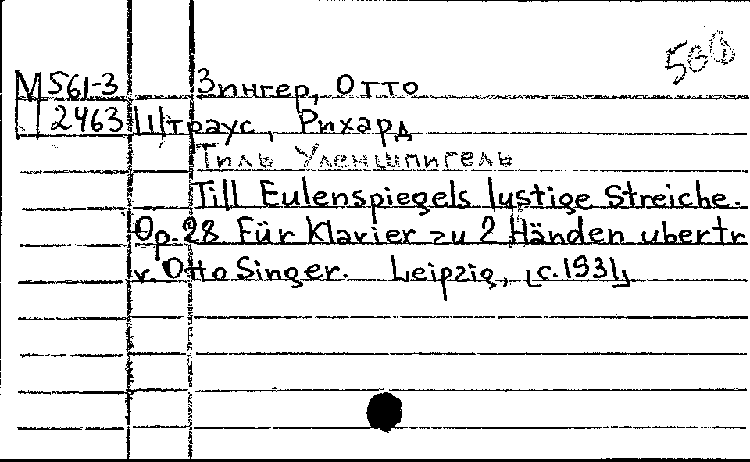 М 561-3 Зингер, Отто
2463 Штраус, Рихард
Тиль Уленшпигель
Till Eulenspiegels lustige Streiche.
Op. 28 Für Klavier zu 2 Händen ubertr
v. Otto Singer. Leipzig, [c. 1931]